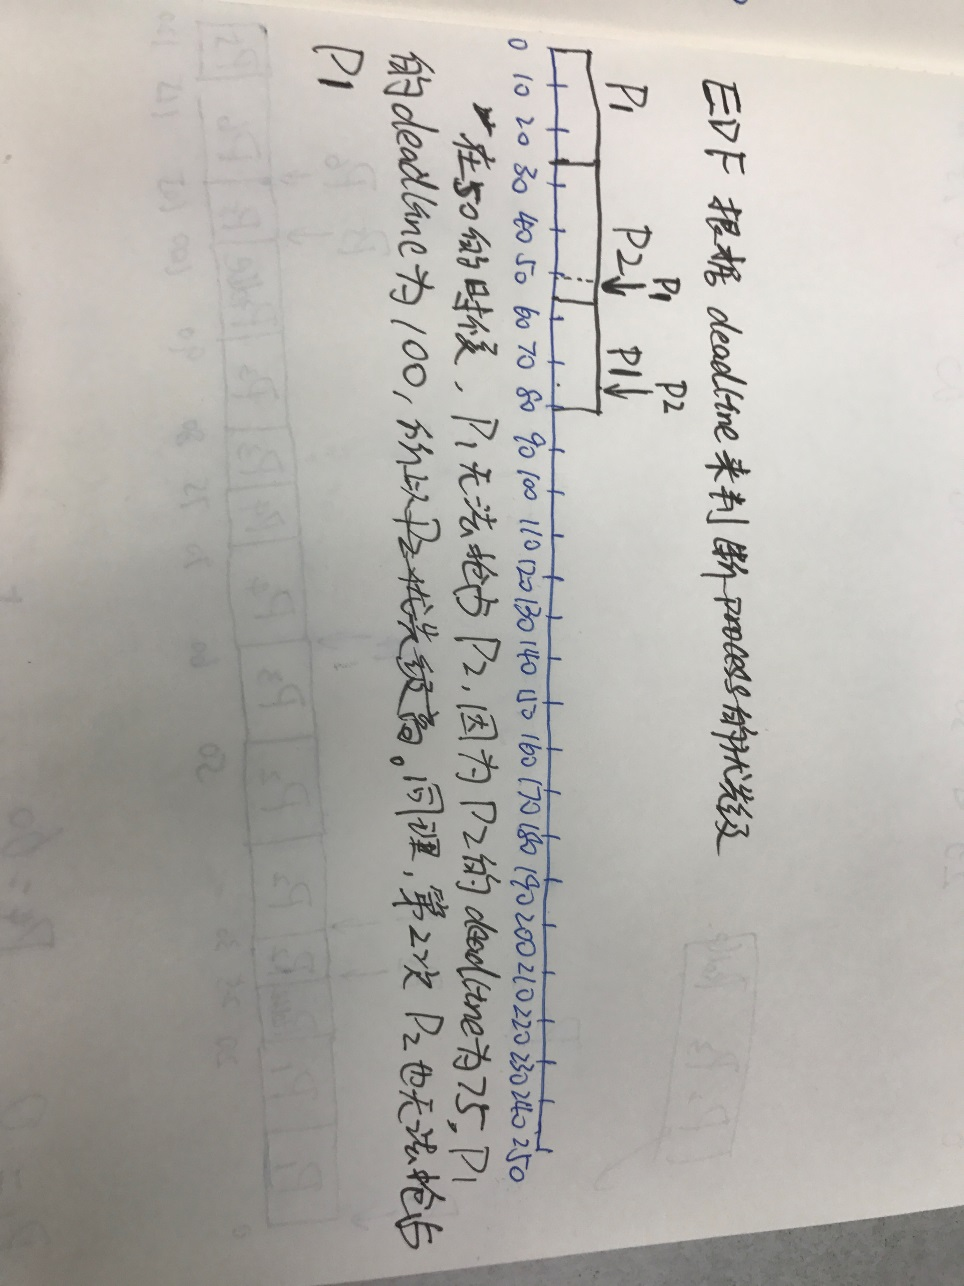 EDF 根据 deadline来判断process的优先级
P1 P2↓ P1 P1↓ P2
0 10 20 30 40 50 60 70 80 90 100 110 120 130 140 150 160 170 180 190 200 210 220 230 240 250
*在50的时候，P1无法抢占P2，因为P2的deadline为75，P1
的deadline为100，所以P2优先级高。同理，第2次P2也无法抢占
P1